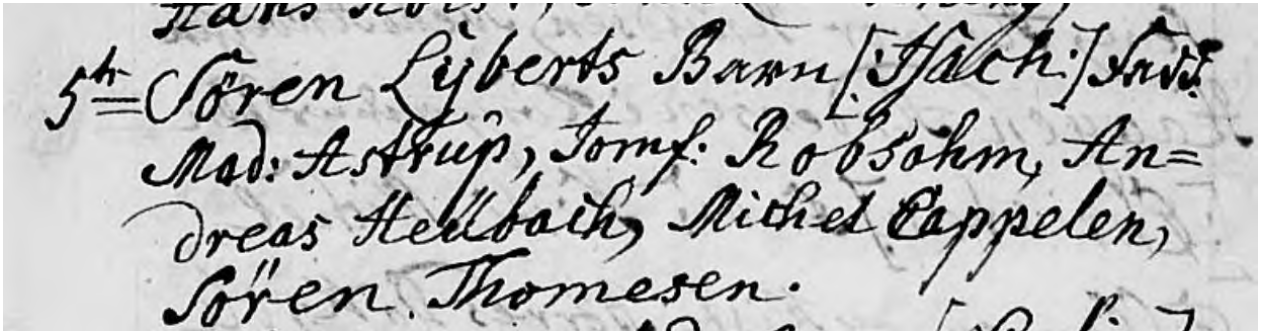 5te Sören Lyberts Barn [: Isach :] Fadd:
Mad: Astrup, Jomf: Robsahm, An=
dreas Heübach, Michel Cappelen,
Sören Thomesen.